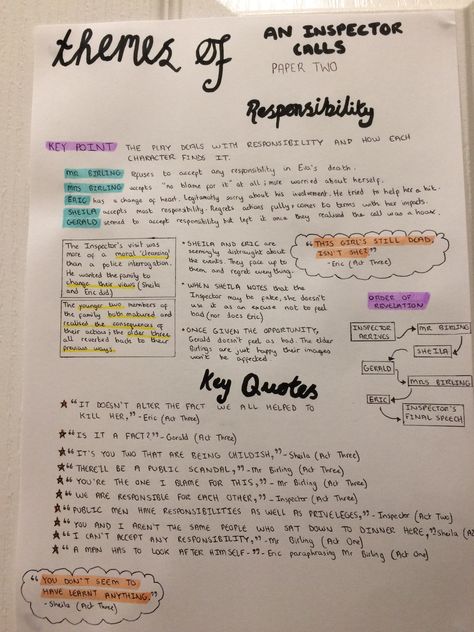 themes of AN INSPECTOR CALLS
PAPER TWO
Responsibility
KEY POINT THE PLAY DEALS WITH RESPONSIBILITY AND HOW EACH
CHARACTER FINDS IT.
MR BIRLING Refuses to accept any responsibility in Eva's death.
MRS BIRLING accepts "no blame for it" at all; more worried about herself.
ERIC has a change of heart. Legitimatly sorry about his involvement. He tried to help her a bit.
SHEILA accepts most responsibility. Regrets actions fully + comes to terms with her impacts.
GERALD seemed to accept responsibility but left it once they realised the call was a hoax.
The Inspector's visit was
more of a moral 'cleansing'
than a police interrogation.
He wanted the family to
change their views (Sheila
and Eric did)
The younger two members of
the family both matured and
realised the consequences of
their actions; the older three
all reverted back to their
previous ways.
• SHEILA AND ERIC are
seemingly distraught about
the events. They face up to
them, and regret everything.
• WHEN SHEILA NOTES that the
Inspector may be fake, she doesn't
use it as an excuse not to feel
bad (nor does Eric)
• ONCE GIVEN THE OPPORTUNITY,
Gerald doesn't feel as bad. The elder
Birlings are just happy their images
won't be affected.
"THIS GIRL'S STILL DEAD,
ISN'T SHE?"
- Eric (Act Three)
ORDER OF
REVELATION
INSPECTOR
ARRIVES
MR BIRLING
SHEILA
GERALD
MRS BIRLING
ERIC
INSPECTOR'S
FINAL SPEECH
Key Quotes
"IT DOESN'T ALTER THE FACT WE ALL HELPED TO
KILL HER," - Eric (Act Three)
"IS IT A FACT?" - Gerald (Act Three)
"IT'S YOU TWO THAT ARE BEING CHILDISH," - Sheila (Act Three)
"THERE'LL BE A PUBLIC SCANDAL," - Mr Birling (Act Three)
"YOU'RE THE ONE I BLAME FOR THIS," - Mr Birling (Act Three)
"WE ARE RESPONSIBLE FOR EACH OTHER," - Inspector (Act Three)
"PUBLIC MEN HAVE RESPONSIBILITIES AS WELL AS PRIVELEGES," - Inspector (Act Two)
"YOU AND I AREN'T THE SAME PEOPLE WHO SAT DOWN TO DINNER HERE," Sheila (Act
"I CAN'T ACCEPT ANY RESPONSIBILITY," - Mr Birling (Act One)
"A MAN HAS TO LOOK AFTER HIMSELF" - Eric paraphrasing Mr Birling (Act One)
"YOU DON'T SEEM TO
HAVE LEARNT ANYTHING,"
- Sheila (Act Three)